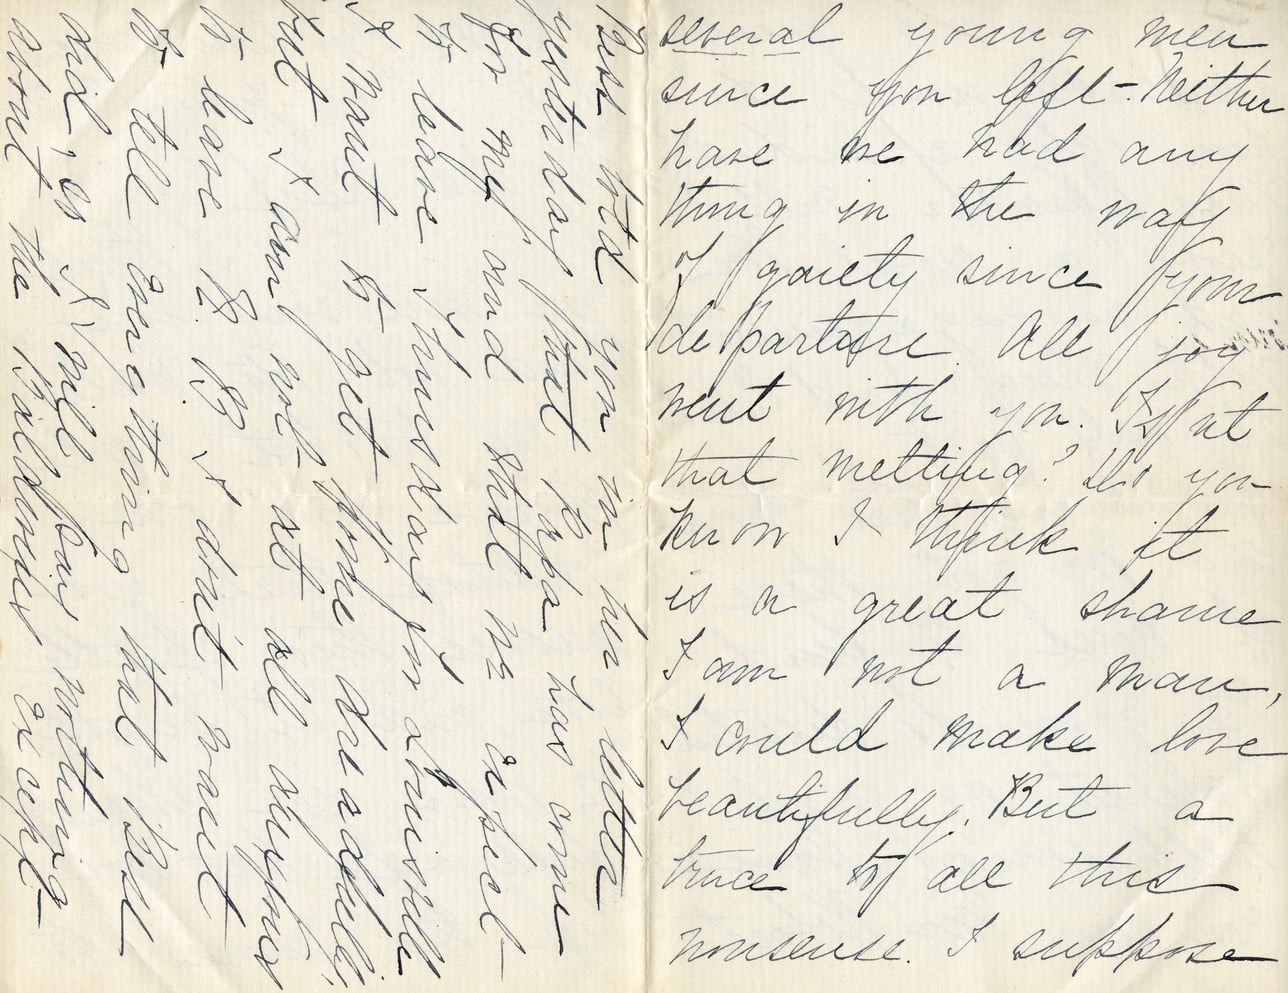 several young men
since you left-. Neither
have we had any
thing in the way
of gaiety since your
departure. All joy
went with you. Is nt
that melting? Do you
know I think it
is a great shame
I am not a man,
I could make love
beautifully. But a
truce to all this
nonsense. I suppose
Bess told you in her letter
yesterday that Papa has come
for me and that we expect
to leave Thursday for Louisville
I want to get home dreadfully,
but I am not at all anxious
to leave K. B. I don't want
to tell everything that Bess
did, so I will say nothing
about the except